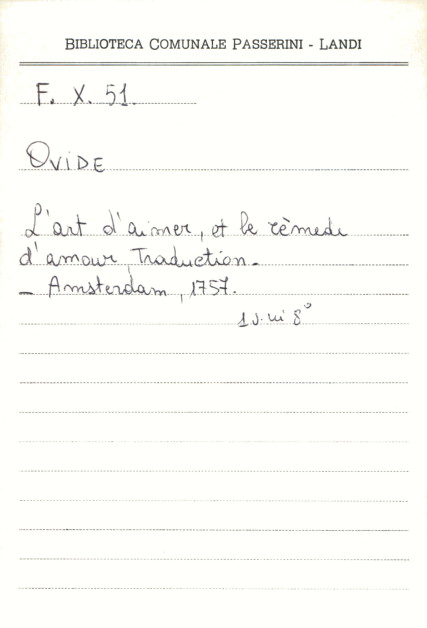 BIBLIOTECA COMUNALE PASSERINI - LANDI
F. X. 51.
OVIDE
L'art d'aimer, et le rèmede
d'amour, Traduction.
- Amsterdam, 1757.
1 v. in 8°